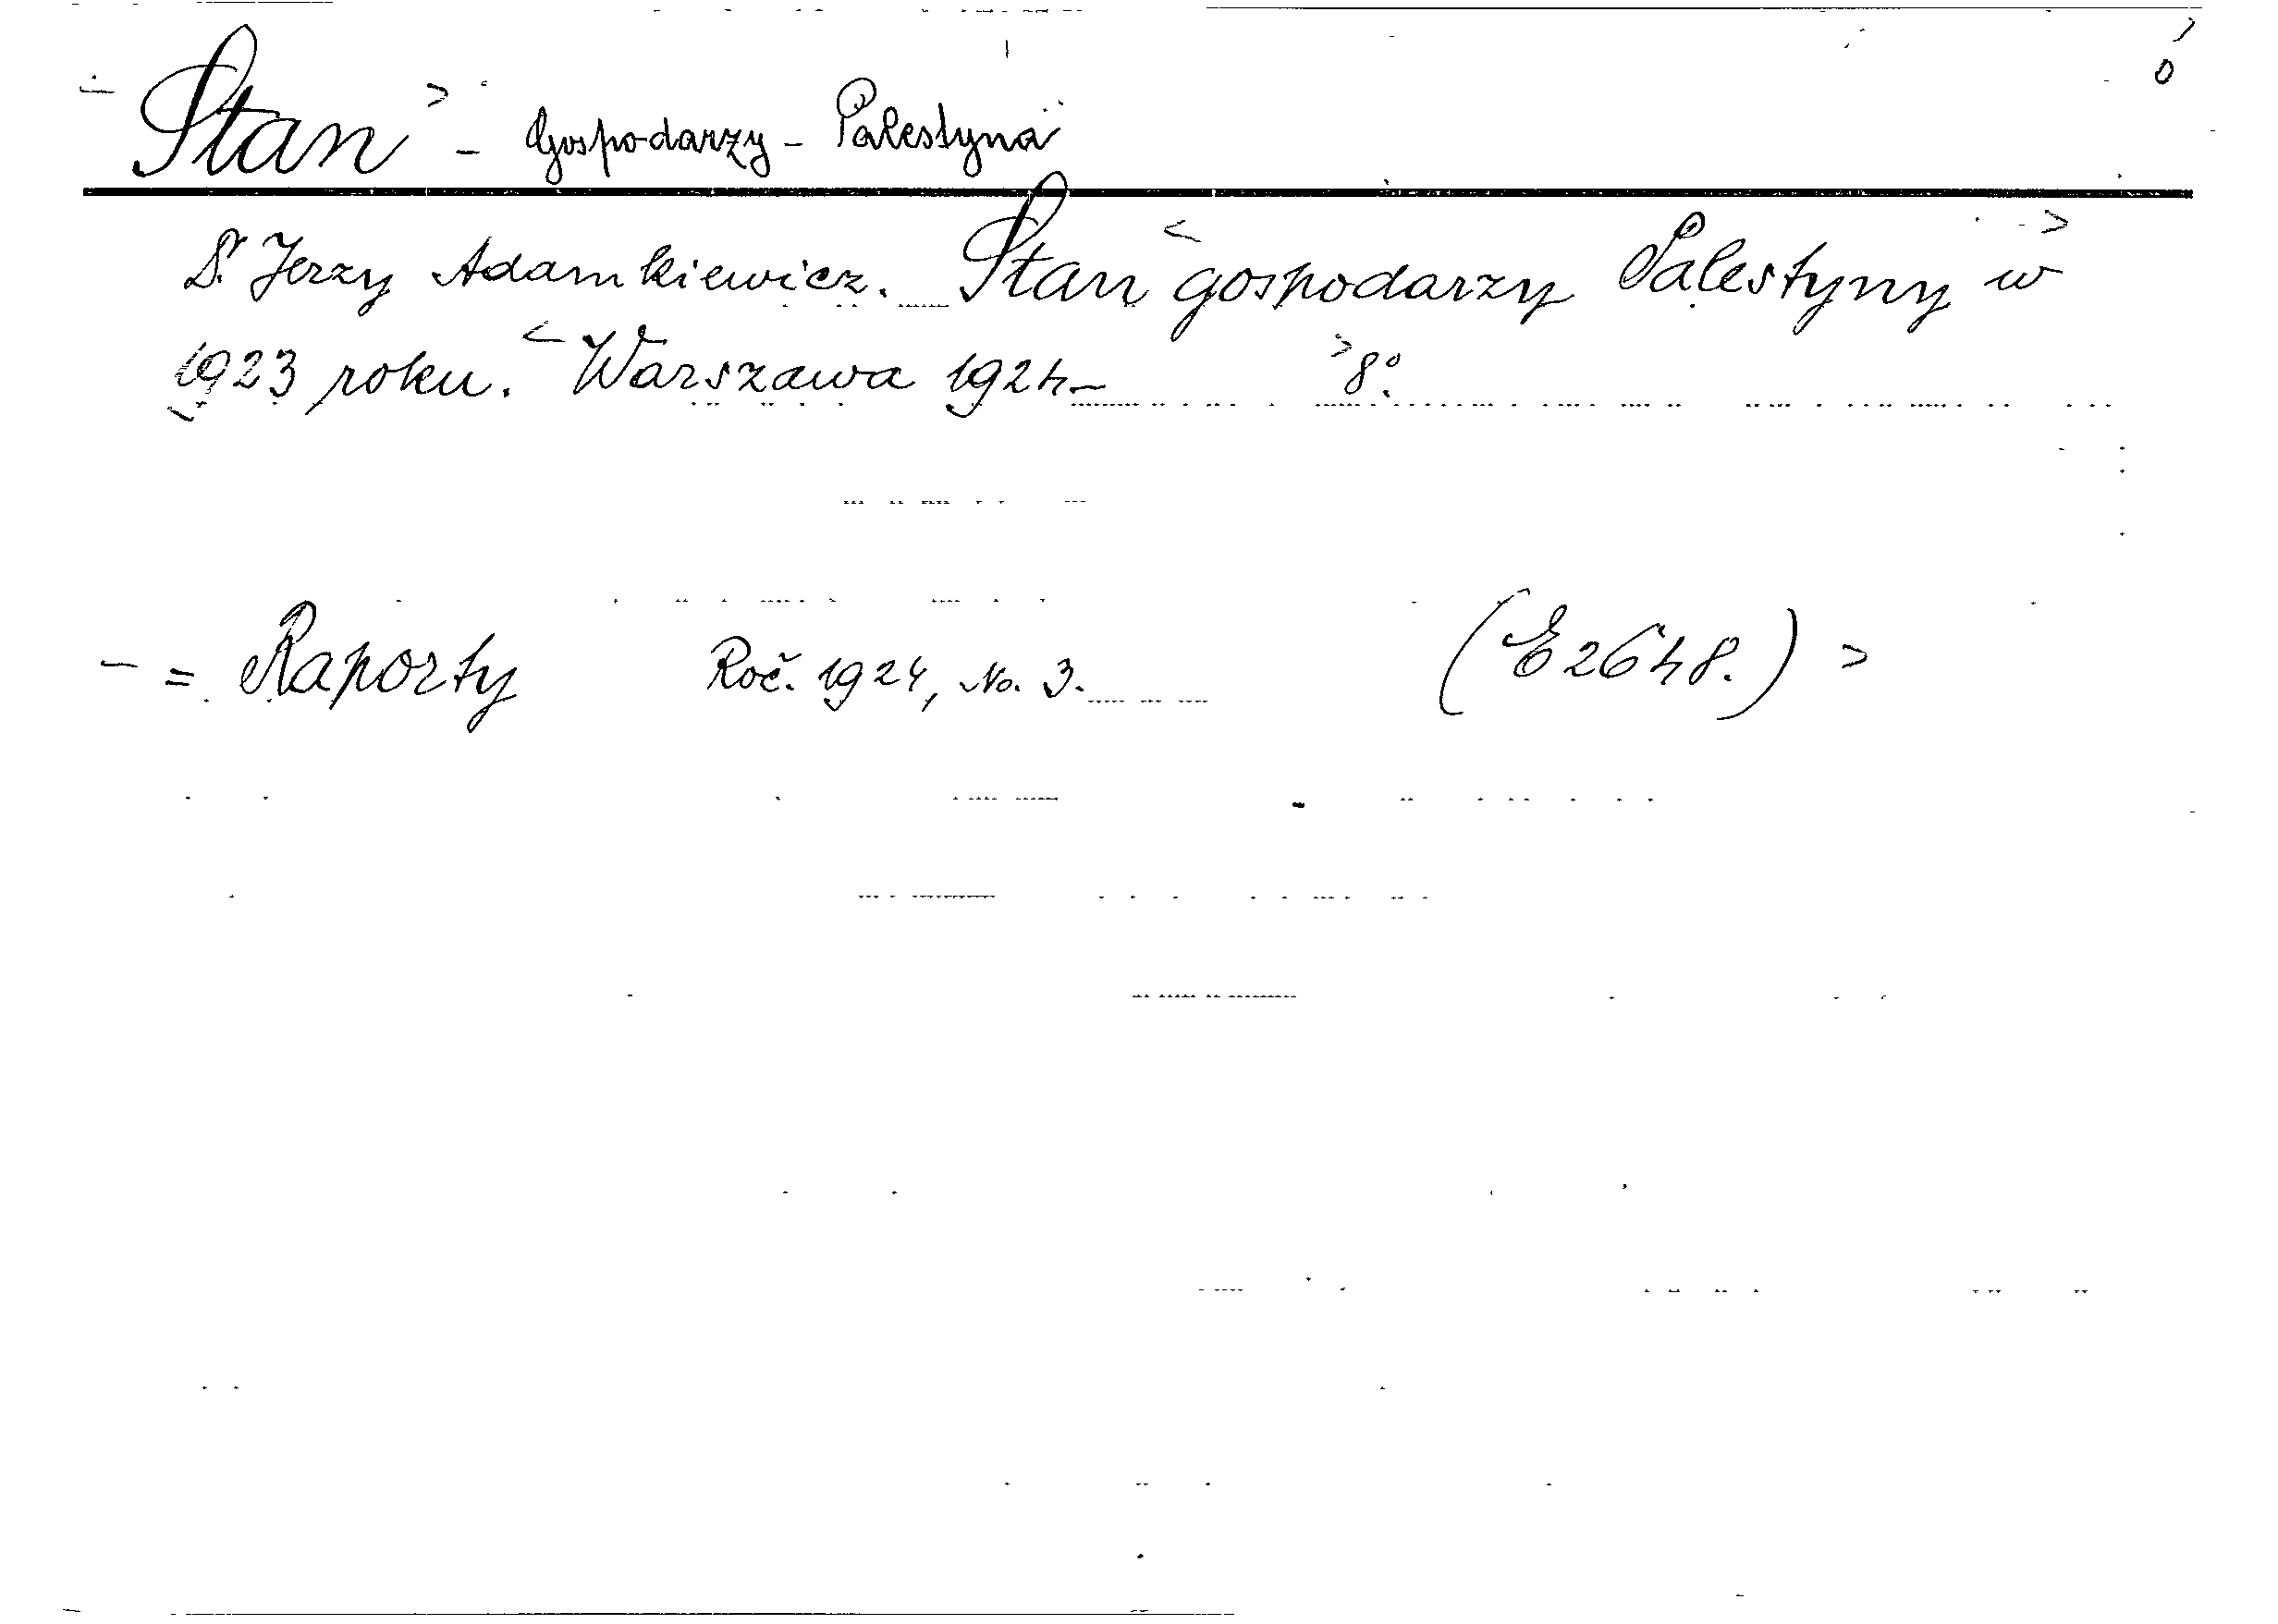 Stan - Gospodarzy - Palestyna
Dr. Jerzy Adamkiewicz. Stan gospodarzy Palestyny w
1923 roku. Warszawa 1924 - 8°.
- = Raporty Roč. 1924, No. 3. (E2648.)